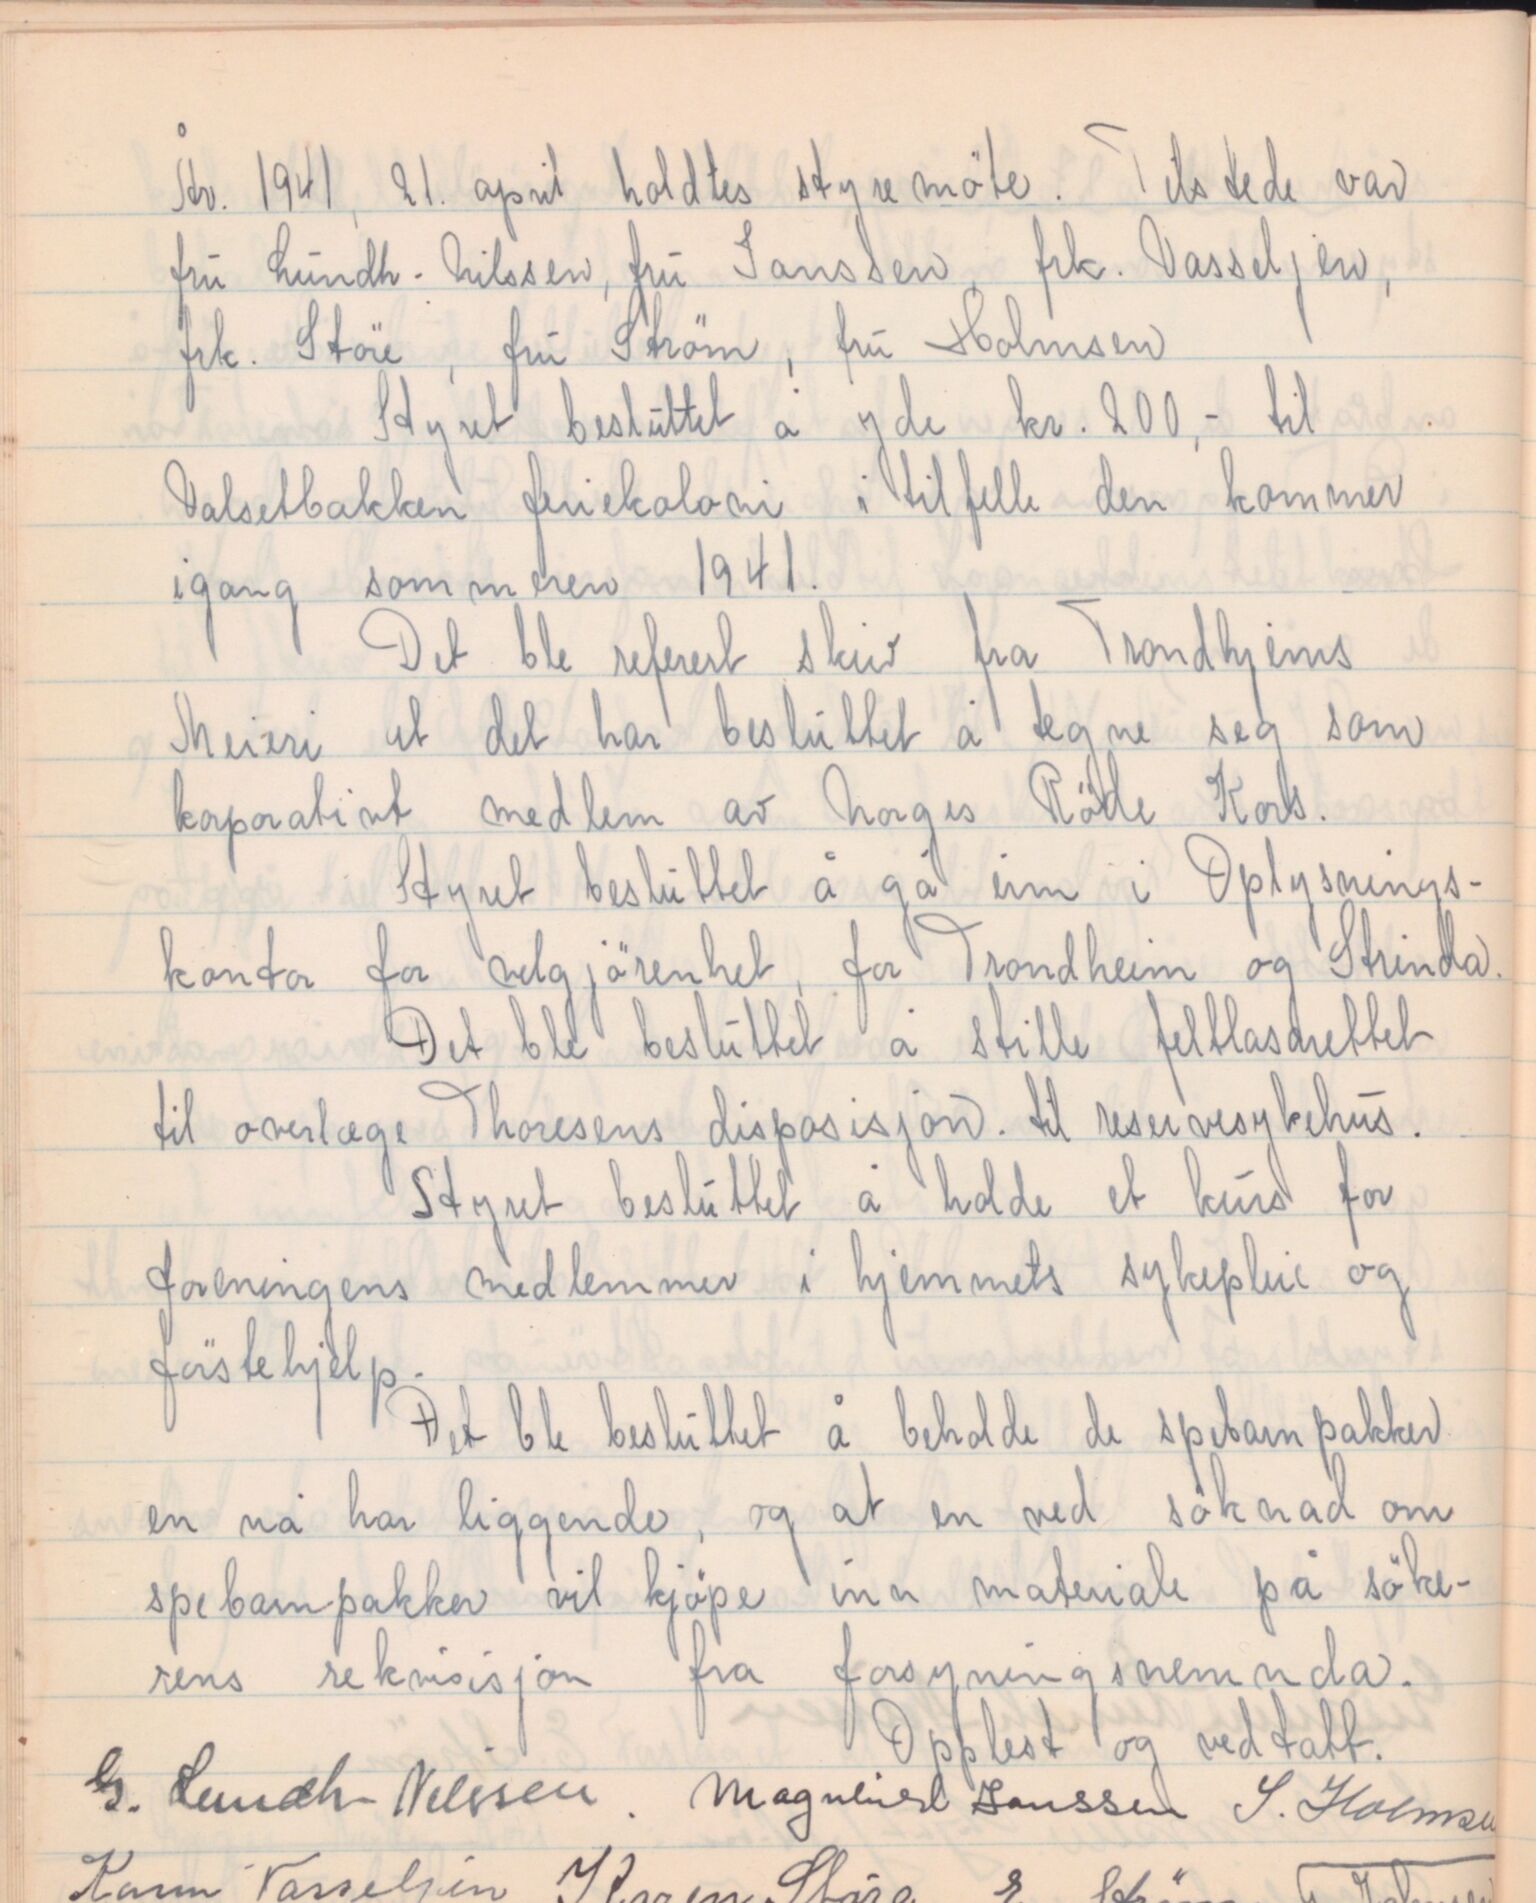 År. 1941, 21. april holdtes styremöte. Tilstede var
frü Lündh-Nilssen, frü Janssen, frk. Vasseljen,
frk. Störe, frü Ström, frü Holmsen
Styret beslüttet å yde kr. 200,- til
Valsetbakken feriekoloni i tilfelle den kommer
igang sommeren 1941.
Det ble referert skriv fra Trondhjems
Meieri at det har beslüttet å tegne seg som
korporativt medlem av Norges Röde Kors.
Styret beslüttet å gå inn i Oplysnings-
kontor for velgjörenhet, for Trondheim og Strinda.
Det ble beslüttet å stille feltlasarettet
til overlæge Thoresens disposisjon. til reservesykehüs.
Styret beslüttet å holde et kürs for
foreningens medlemmer i hjemmets sykepleie og
förstehjelp.
Det ble beslüttet å beholde de spebarnpakker
en nå har liggende, og at en ved söknad om
spebarnpakker vil kjöpe inn materiale på söke-
rens rekvisisjon fra forsyningsnemnda.
Opplest og vedtatt.
G. Lundh-Nilssen. Magnhild Janssen S. Holmsen
Karin Vasseljen Karen Störe E. Ström